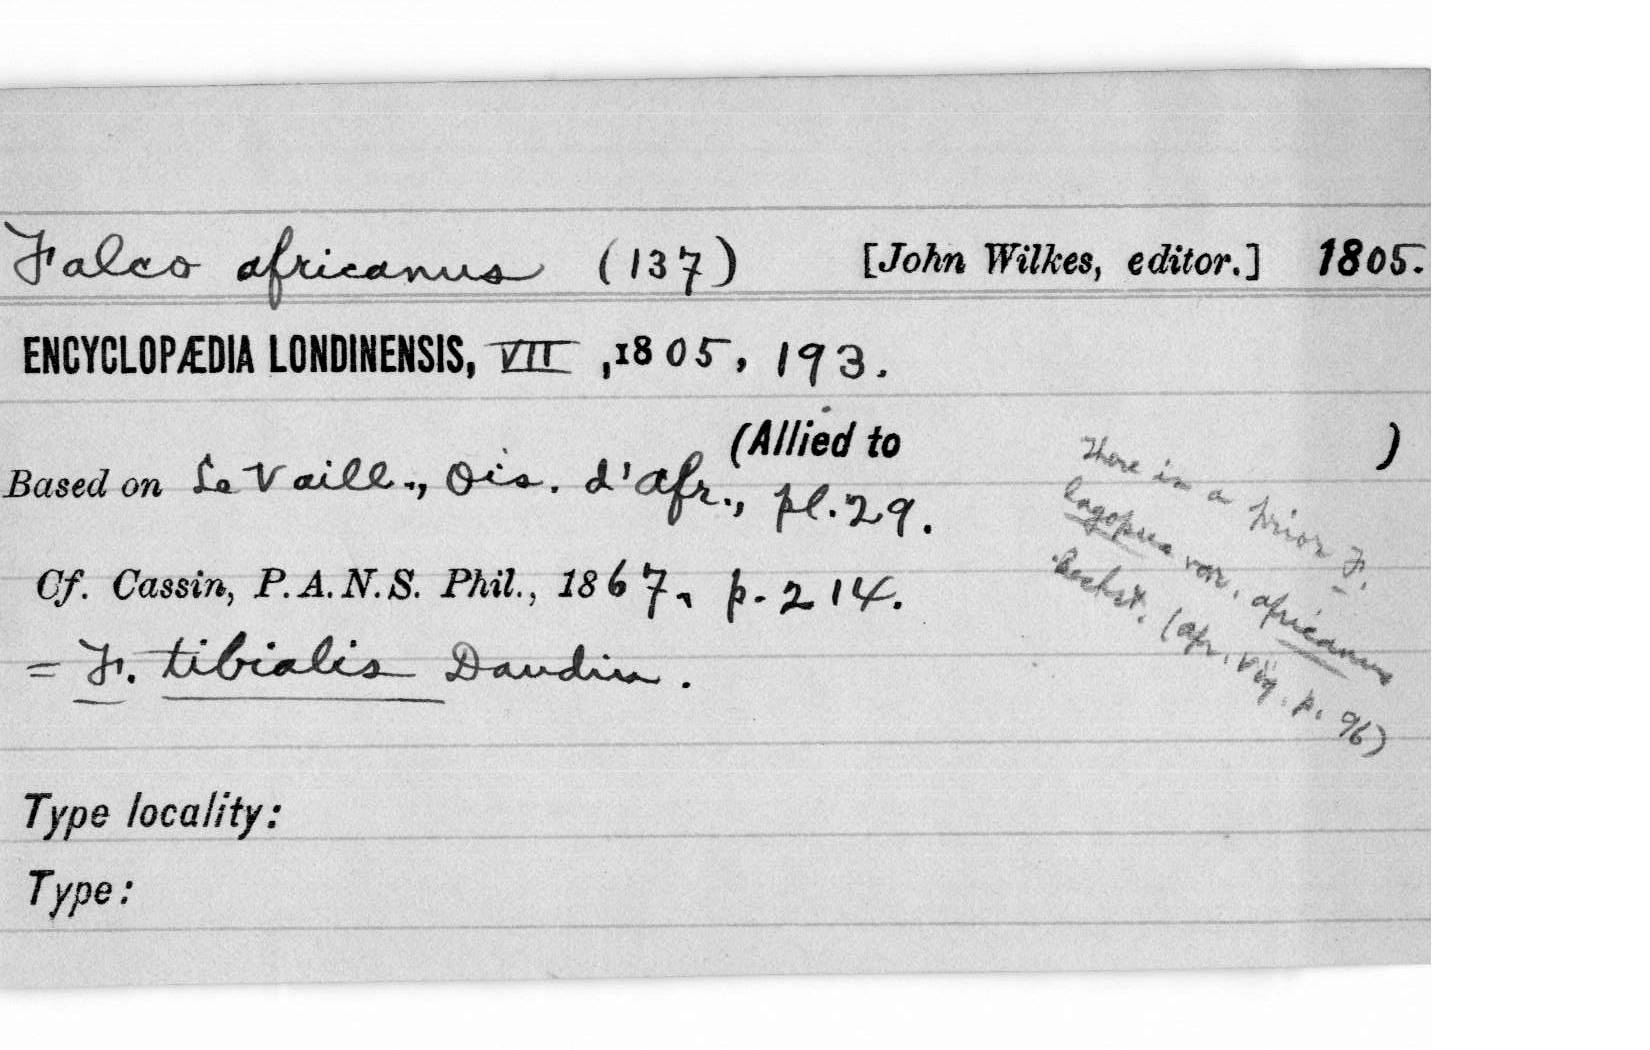 Falco africanus (137) [John Wilkes, editor.] 1805.
ENCYCLOPÆDIA LONDINENSIS, VII, 1805, 193.
(Allied to )
Based on Le Vaill., Ois. d'Afr., pl. 29.
Cf. Cassin, P. A. N. S. Phil., 1867, p. 214.
= F. tibialis Daudin.
There is a prior F.
lagopus var. africanus
Bechst. (afr. Vög. p. 96)
Type locality:
Type: